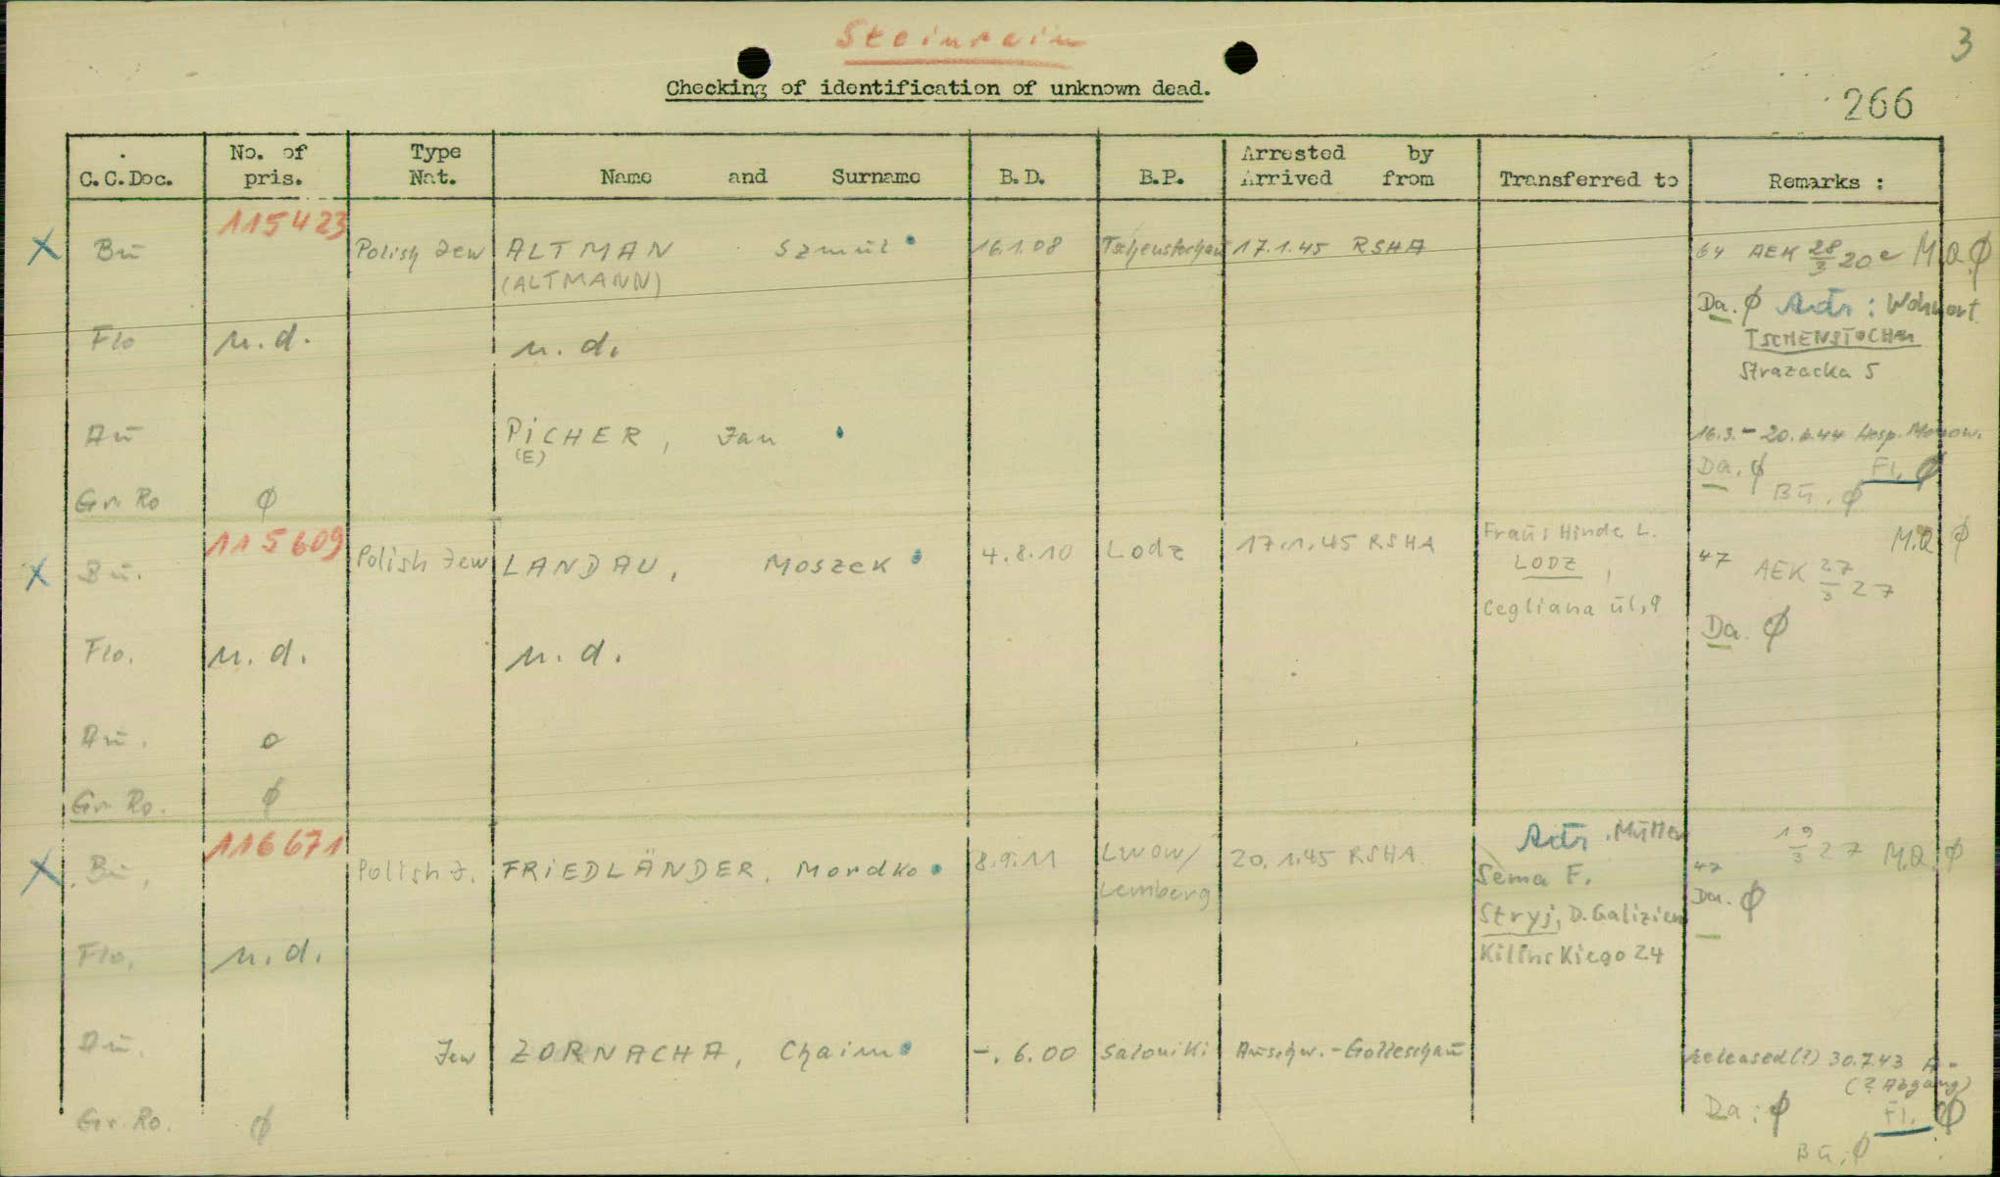 Steinrain
3
Checking of identification of unknown dead.
266
C.C.Doc. No. of pris. Type Nat. Name and Surname B.D. B.P. Arrested by Arrived from Transferred to Remarks :
115423
X Bu Polish Jew ALTMAN Szmul 16.1.08 Tschenstochau 17.1.45 RSHA 64 AEK 28/3 20 M.Q. Ø
(ALTMANN)
Da. Ø : Wohnort
Flo n.d. n.d. TSCHENSTOCHAU
Strazacka 5
Au PICHER, Jan 16.3.-20.6.44 Hosp. Monow.
(E)
Da. Ø Fl. Ø
Gr. Ro Ø Bu. Ø
115609
X Bu. Polish Jew LANDAU, Moszek 4.8.10 Lodz 17.1.45 RSHA Frau: Hinde L. M.Q. Ø
LODZ, 47 AEK 27/3 27
Cegliana ul, 9
Da. Ø
Flo. n.d. n.d.
Au. o
Gr. Ro. Ø
116671
X Bu. Polish J. FRIEDLÄNDER, Mordko 8.9.11 Lwow/ 20.1.45 RSHA Mutter 19/3 27 M.Q. Ø
Lemberg Sema F. 47
Stryj, D. Galizien Da. Ø
Flo. n.d. Kilinskiego 24
Au. Jew ZORNACHA, Chaim -.6.00 Saloniki Auschw.-Golleschau released(?) 30.7.43
(? Abgang)
Da: Ø Fl. Ø
Gr. Ro. Ø
Bu. Ø